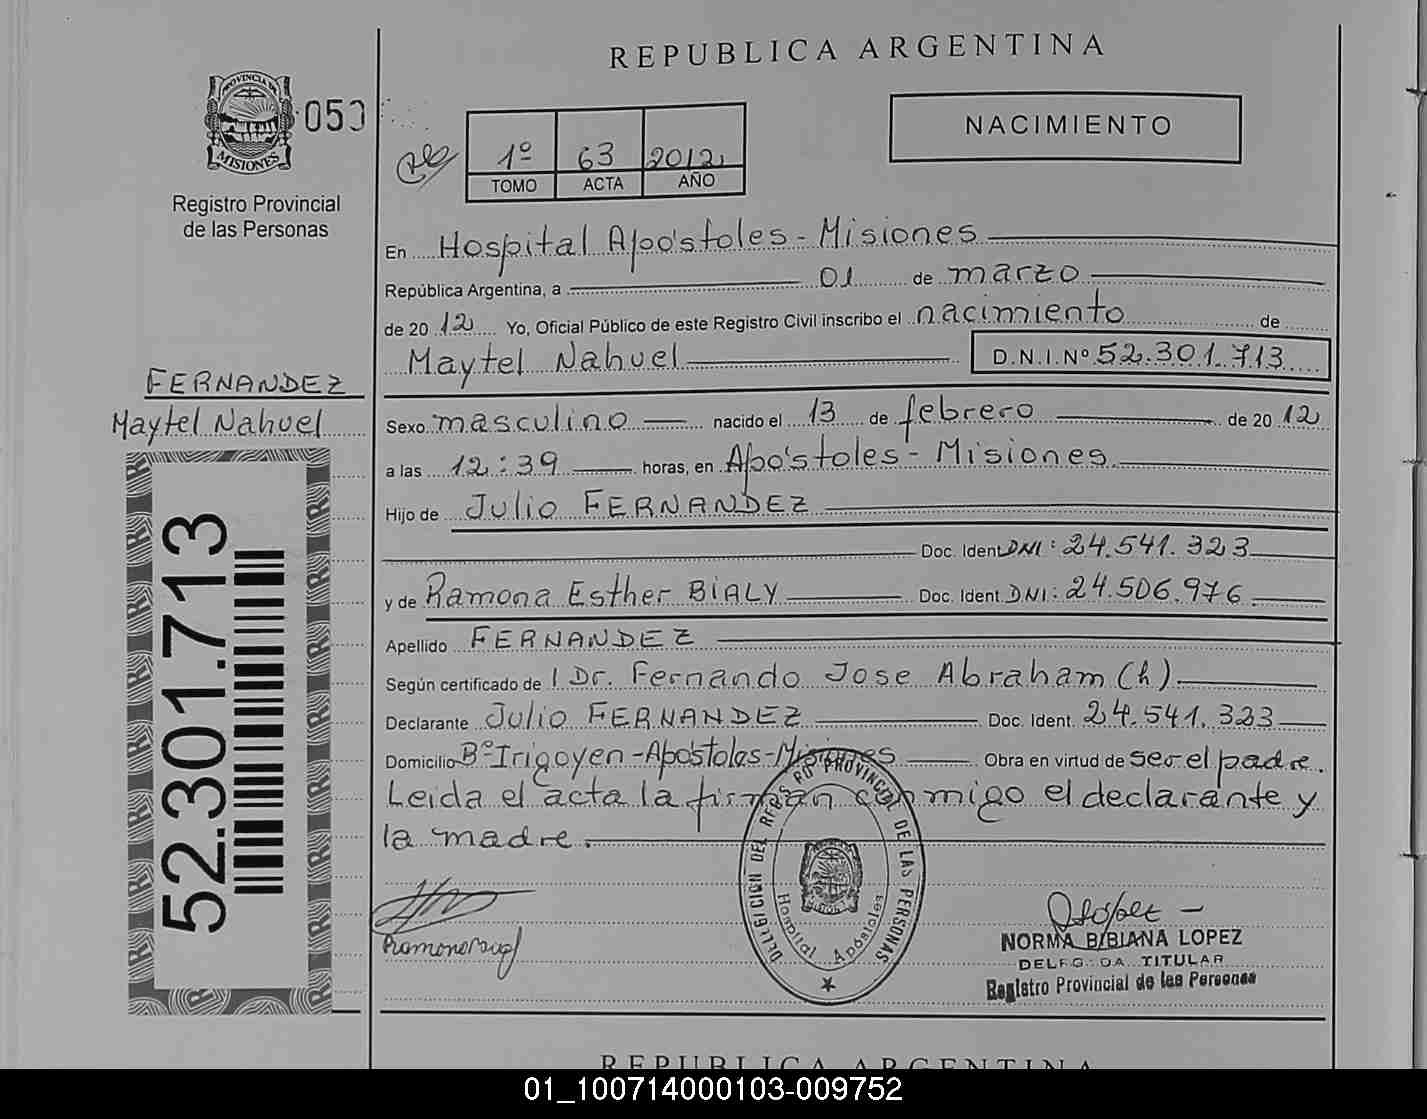 REPUBLICA ARGENTINA
PROVINCIA DE
MISIONES
050
Registro Provincial
de las Personas
NACIMIENTO
1º 63 2012
TOMO ACTA AÑO
En Hospital Apóstoles - Misiones
República Argentina, a 01 de marzo
de 2012 Yo, Oficial Público de este Registro Civil inscribo el nacimiento de
Maytel Nahuel D.N.I.Nº 52.301.713
FERNANDEZ
Maytel Nahuel
52.301.713
Sexo masculino nacido el 13 de febrero de 2012
a las 12:39 horas, en Apóstoles - Misiones
Hijo de Julio FERNANDEZ
Doc. Ident. DNI: 24.541.323
y de Ramona Esther BIALY Doc. Ident. DNI: 24.506.976
Apellido FERNANDEZ
Según certificado del Dr. Fernando Jose Abraham (h).
Declarante Julio FERNANDEZ Doc. Ident. 24.541.323
Domicilio Bº Irigoyen - Apóstoles - Misiones Obra en virtud de ser el padre.
Leida el acta la firman conmigo el declarante y
la madre.
DELEGACION DEL REGISTRO PROVINCIAL DE LAS PERSONAS
Hospital Apóstoles
NORMA BIBIANA LOPEZ
DELEGADA TITULAR
Registro Provincial de las Personas
REPUBLICA ARGENTINA
01_100714000103-009752